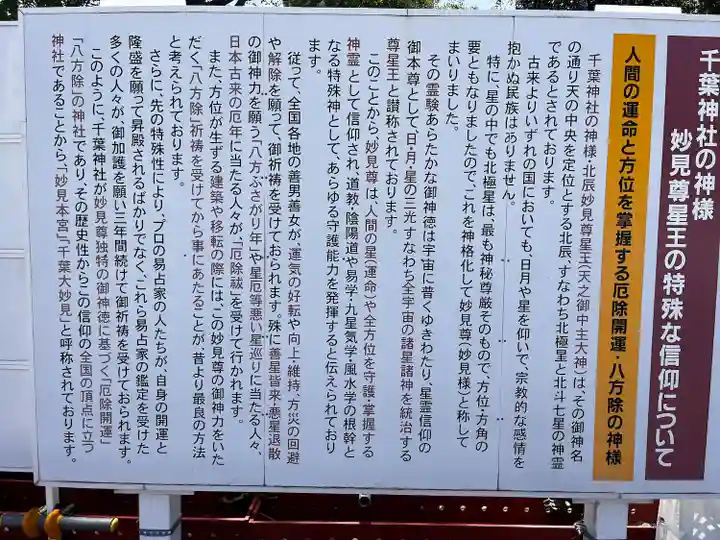 千葉神社の神様
妙見尊星王の特殊な信仰について
人間の運命と方位を掌握する厄除開運・八方除の神様
千葉神社の神様・北辰妙見尊星王(天之御中主大神)は、その御神名
の通り天の中央を定位とする北辰、すなわち北極星と北斗七星の神霊
であるとされております。
古来よりいずれの国においても、日月や星を仰いで、宗教的な感情を
抱かぬ民族はありません。
特に、星の中でも北極星は、最も神秘尊厳そのもので、方位・方角の
要ともなりましたので、これを神格化して妙見尊(妙見様)と称して
まいりました。
その霊験あらたかな御神徳は宇宙に普くゆきわたり、星霊信仰の
御本尊として、日・月・星の三光すなわち全宇宙の諸星諸神を統治する
尊星王と讃称されております。
このことから、妙見尊は、人間の星(運命)や全方位を守護・掌握する
神霊として信仰され、道教・陰陽道や易学・九星気学・風水学の根幹と
なる特殊神として、あらゆる守護能力を発揮すると伝えられており
ます。
従って、全国各地の善男善女が、運気の好転や向上・維持、方災の回避
や解除を願って、御祈祷を受けておられます。殊に善星皆来・悪星退散
の御神力を願う「八方ふさがり年」や星厄等悪い星巡りに当たる人々、
日本古来の厄年に当たる人々が、「厄除祓」を受けて行かれます。
また、方位が生ずる建築や移転の際には、この妙見尊の御神力をいた
だく「八方除」祈祷を受けてから事にあたることが、昔より最良の方法
と考えられております。
さらに、先の特殊性により、プロの易占家の人たちが、自身の開運と
隆盛を願って昇殿されるばかりでなく、これら易占家の鑑定を受けた
多くの人々が、御加護を願い三年間続けて御祈祷を受けておられます。
このように、千葉神社が妙見尊独特の御神徳に基づく「厄除開運」
「八方除」の神社であり、その歴史性からこの信仰の全国の頂点に立つ
神社であることから、「妙見本宮」「千葉大妙見」と呼称されております。